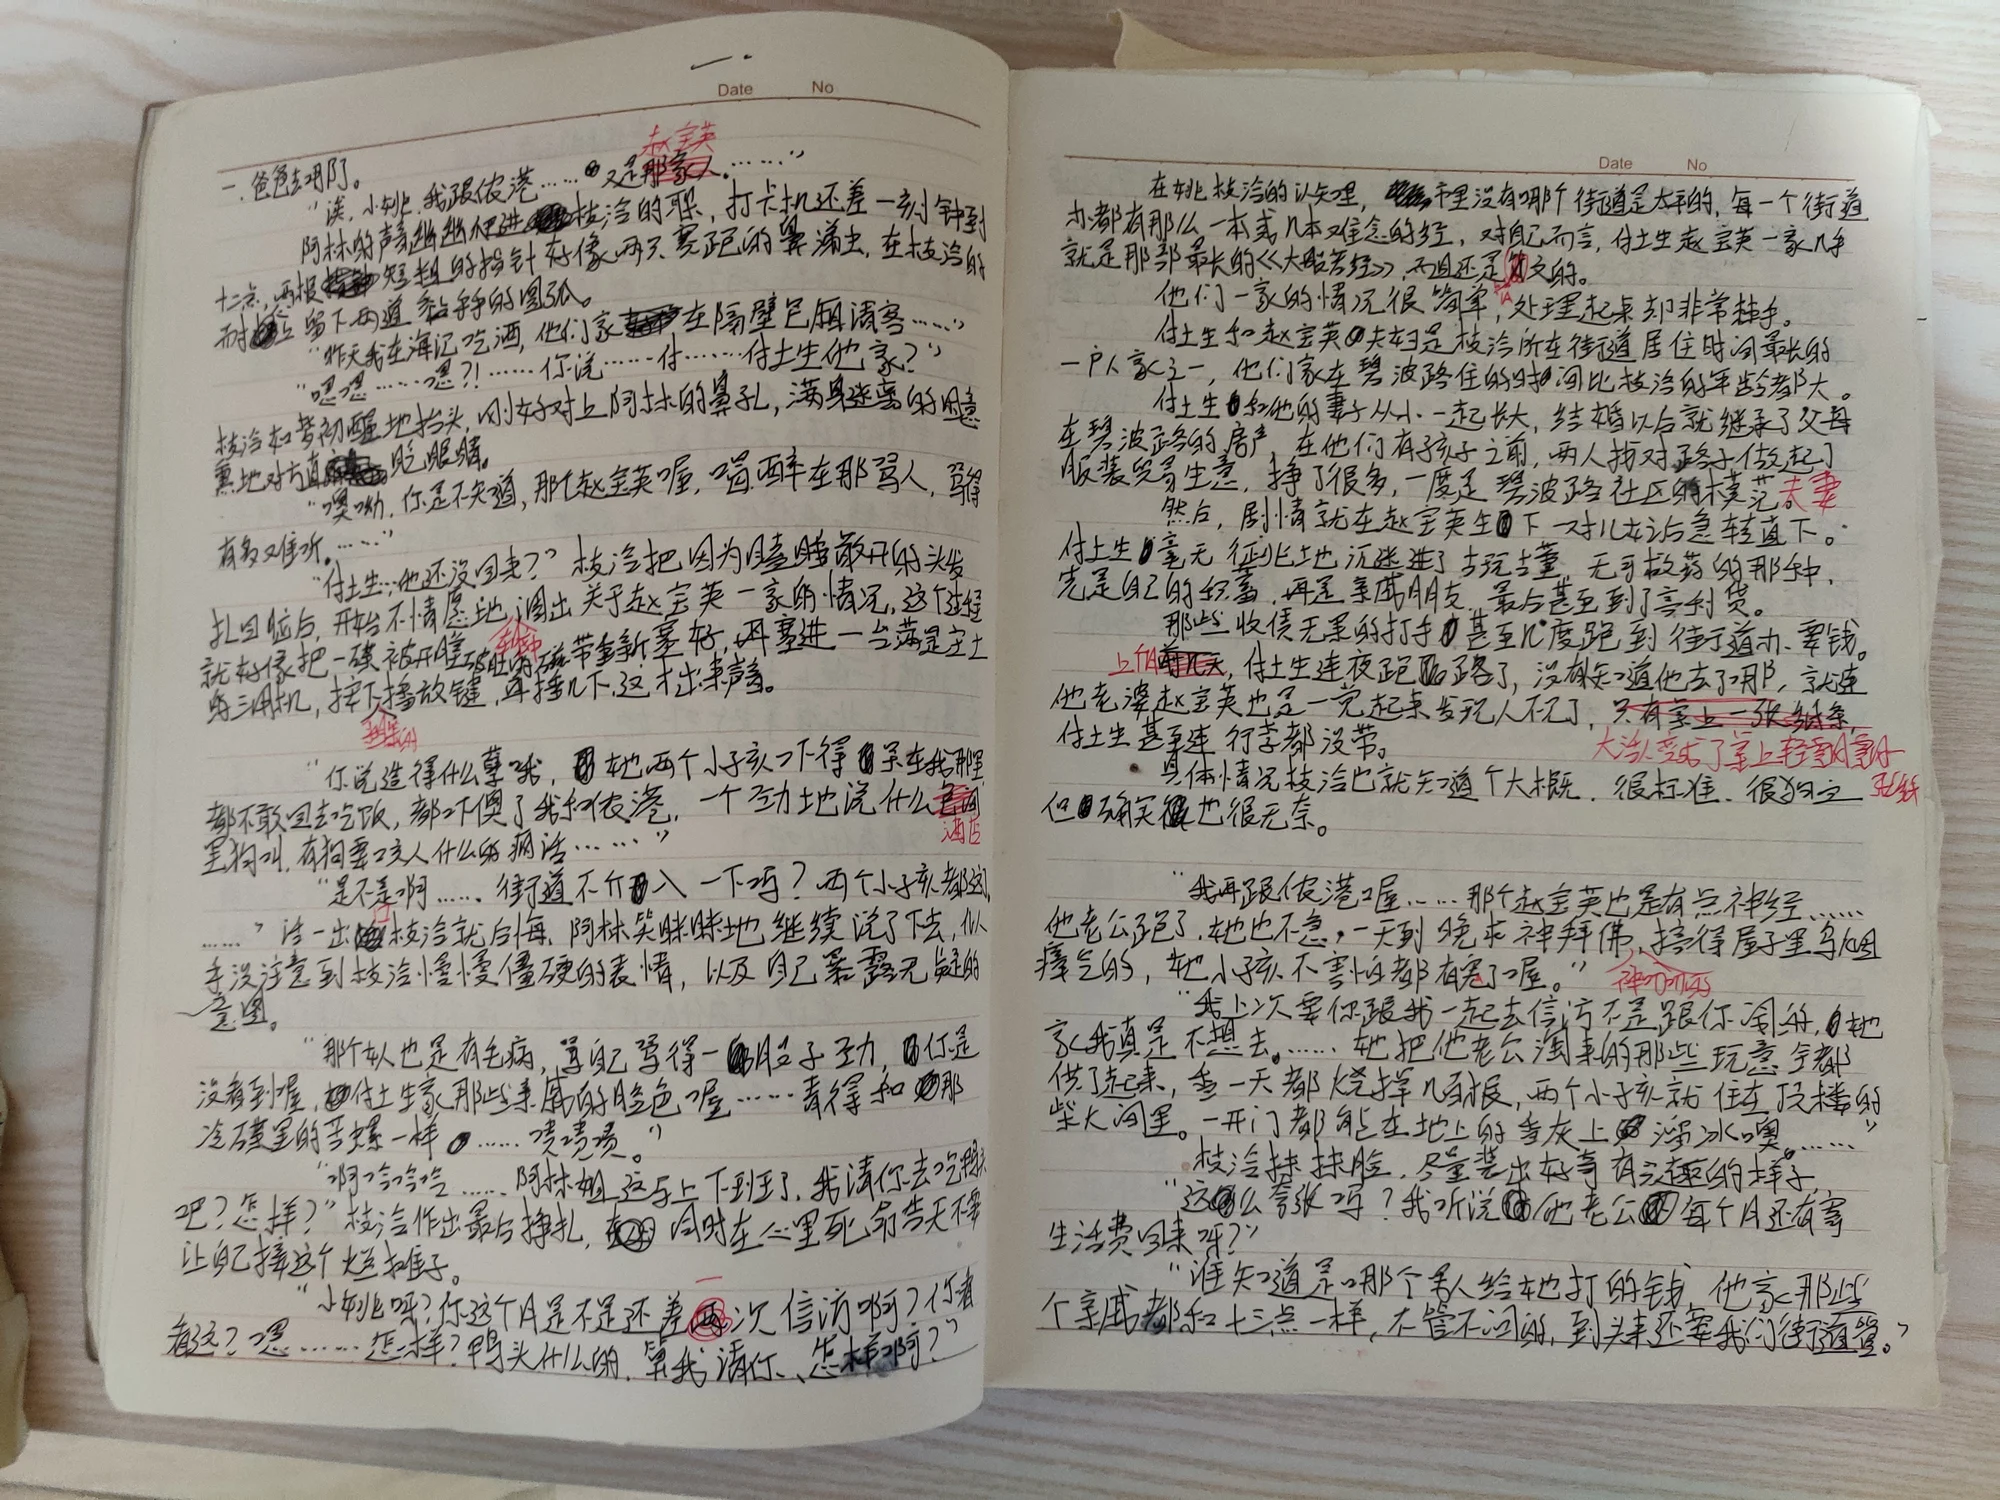 一.
Date No
一.爸爸去哪了。
赵宝英
“诶,小姚,我跟侬港……又是那家人……”
阿林的声幽幽地进枝冶的耳,打卡机还差一刻钟到
十二点,两根短粗的指针好像两只赛跑的鼻涕虫,在枝冶的
留下两道黏稠的圆弧。
“昨天我在海记吃酒,他们家在隔壁包厢请客……”
“嗯嗯……嗯?!……你说……付……付土生他家?”
枝冶如梦初醒地抬头,刚好对上阿林的鼻孔,满身迷离的困意
熏地对方直眨眼睛。
“噢呦,你是不知道,那个赵宝英喔,喝醉在那骂人,骂得
有多难听……”
“付土生…他还没回来?”枝冶把因为瞌睡散开的头发
扎回脑后,开始不情愿地调出关于赵宝英一家的情况,这个过程
就好像把一碟被开膛破肚的磁带重新塞好,再塞进一台满是尘土
的三用机,按下播放键,再捶几下,这才出来声。
“你说造得什么孽哦,她两个小孩吓得呆在我那里
都不敢回去吃饭,都吓傻了我和侬港,一个劲地说什么包间
酒店
里狗叫,有狗要咬人什么的疯话……”
“是不是啊……街道不介入一下吗?两个小孩都这
……”话一出口枝冶就后悔,阿林笑眯眯地继续说了下去,似
乎没注意到枝冶慢慢僵硬的表情,以及自己暴露无疑的
意图。
“那个女人也是有毛病,骂自己骂得一股子劲,你是
没看到喔,付土生家那些亲戚的脸色喔……青得和那
冷碟里的青螺一样……啧啧啧。”
“啊哈哈哈……阿林姐这马上下到了,我请你去吃鸭头
吧?怎样?”枝冶作出最后挣扎,同时在心里死命告天不要
让自己接这个烂摊子。
一
“小姚呀?你这个月是不是还差两次信访啊?你看
看这?嗯……怎样?鸭头什么的,算我请你、怎样啊?”
Date No
在姚枝冶的认知里,市里没有哪个街道是太平的,每一个街道
办都有那么一本或几本难念的经,对自己而言,付土生赵宝英一家几乎
就是那部最长的《大悲苦经》,而且还是梵文的。
他们一家的情况很简单,处理起来却非常棘手。
付土生和赵宝英夫妇是枝冶所在街道居住时间最长的
一户人家之一,他们家在碧波路住的时间比枝冶的年龄都大。
付土生和他的妻子从小一起长大,结婚以后就继承了父母
在碧波路的房产,在他们有孩子之前,两人找对路子做起了
服装贸易生意,挣了很多,一度是碧波路社区的模范夫妻。
然后,剧情就在赵宝英生下一对儿女后急转直下。
付土生毫无征兆地沉迷进了古玩古董,无可救药的那种,
先是自己的积蓄,再是亲戚朋友,最后甚至到了高利贷。
那些收债无果的打手甚至几度跑到街道办要钱。
上个月前几天,付土生连夜跑路了,没有知道他去了哪,就连
他老婆赵宝英也是一觉起来发现人不见了,只有桌上一张纸条,
大活人变成了桌上轻飘飘的一张纸
付土生甚至连行李都没带。
具体情况枝冶也就知道个大概,很标准,很狗血
但确实也很无奈。
“我再跟侬港喔……那个赵宝英也是有点神经……
他老公跑了,她也不急,一天到晚求神拜佛,搞得屋子里乌烟
瘴气的,她小孩不害怕都有鬼了喔。”
神叨叨的
“我上次要你跟我一起去信访不是跟你闹的,她
家我真是不想去……她把他老公淘来的那些玩意全都
供了起来,香一天都烧掉几百根,两个小孩就住在顶楼的
柴火间里。一开门都能在地上的香灰上溜冰噢……”
枝冶抹抹脸,尽量装出好奇有兴趣的样子,
“这么夸张吗?我听说他老公每个月还有寄
生活费回来呀?”
“谁知道是哪个男人给她打的钱,他家那些
个亲戚都和十三点一样,不管不问的,到头来还要我们街道管。”